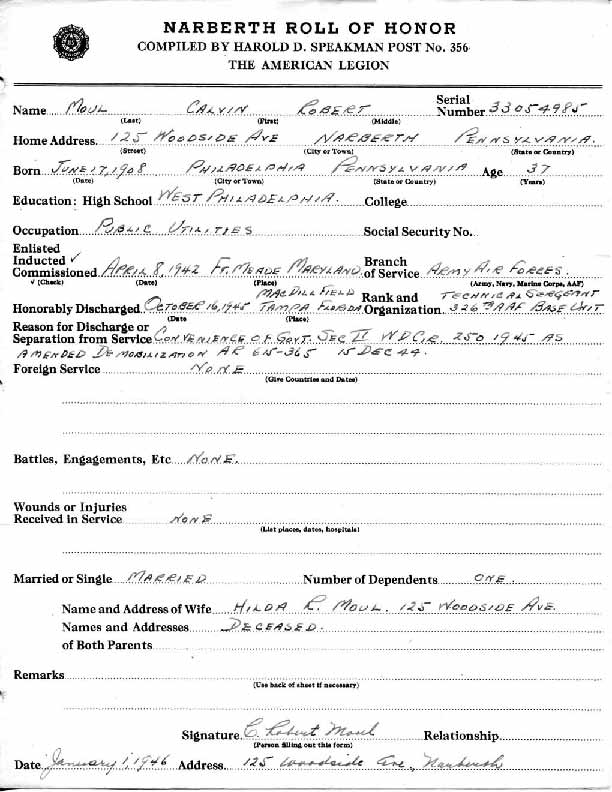 NARBERTH ROLL OF HONOR
COMPILED BY HAROLD D. SPEAKMAN POST No. 356
THE AMERICAN LEGION
Name MOUL CALVIN ROBERT Serial Number 33054985
(Last) (First) (Middle)
Home Address. 125 WOODSIDE AVE NARBERTH PENNSYLVANIA.
(Street) (City or Town) (State or Country)
Born JUNE 17, 1908 PHILADELPHIA PENNSYLVANIA Age 37
(Date) (City or Town) (State or Country) (Years)
Education: High School WEST PHILADELPHIA. College
Occupation PUBLIC UTILITIES Social Security No.
Enlisted
Inducted ✓
Commissioned APRIL 8, 1942 FT. MEADE MARYLAND Branch of Service ARMY AIR FORCES.
√ (Check) (Date) (Place) (Army, Navy, Marine Corps, AAF)
Honorably Discharged OCTOBER 16, 1945 MACDILL FIELD TAMPA FLORIDA Rank and Organization TECHNICAL SERGEANT 326TH AAF BASE UNIT
(Date (Place)
Reason for Discharge or
Separation from Service CONVENIENCE OF GOVT. SEC II W.D.C.R. 250 1945 AS
AMENDED DEMOBILIZATION AR 615-365 15 DEC 44.
Foreign Service NONE
(Give Countries and Dates)
Battles, Engagements, Etc NONE.
Wounds or Injuries
Received in Service NONE
(List places, dates, hospitals)
Married or Single MARRIED Number of Dependents ONE.
Name and Address of Wife HILDA R. MOUL. 125 WOODSIDE AVE.
Names and Addresses DECEASED.
of Both Parents
Remarks
(Use back of sheet if necessary)
Signature C. Robert Moul Relationship
(Person filling out this form)
Date January 1, 1946 Address 125 Woodside Ave., Narberth